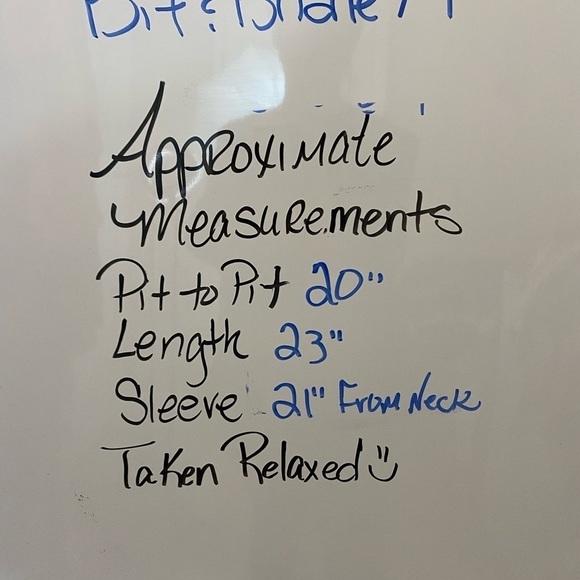 Approximate
Measurements
Pit to Pit 20"
Length 23"
Sleeve 21" From Neck
Taken Relaxed